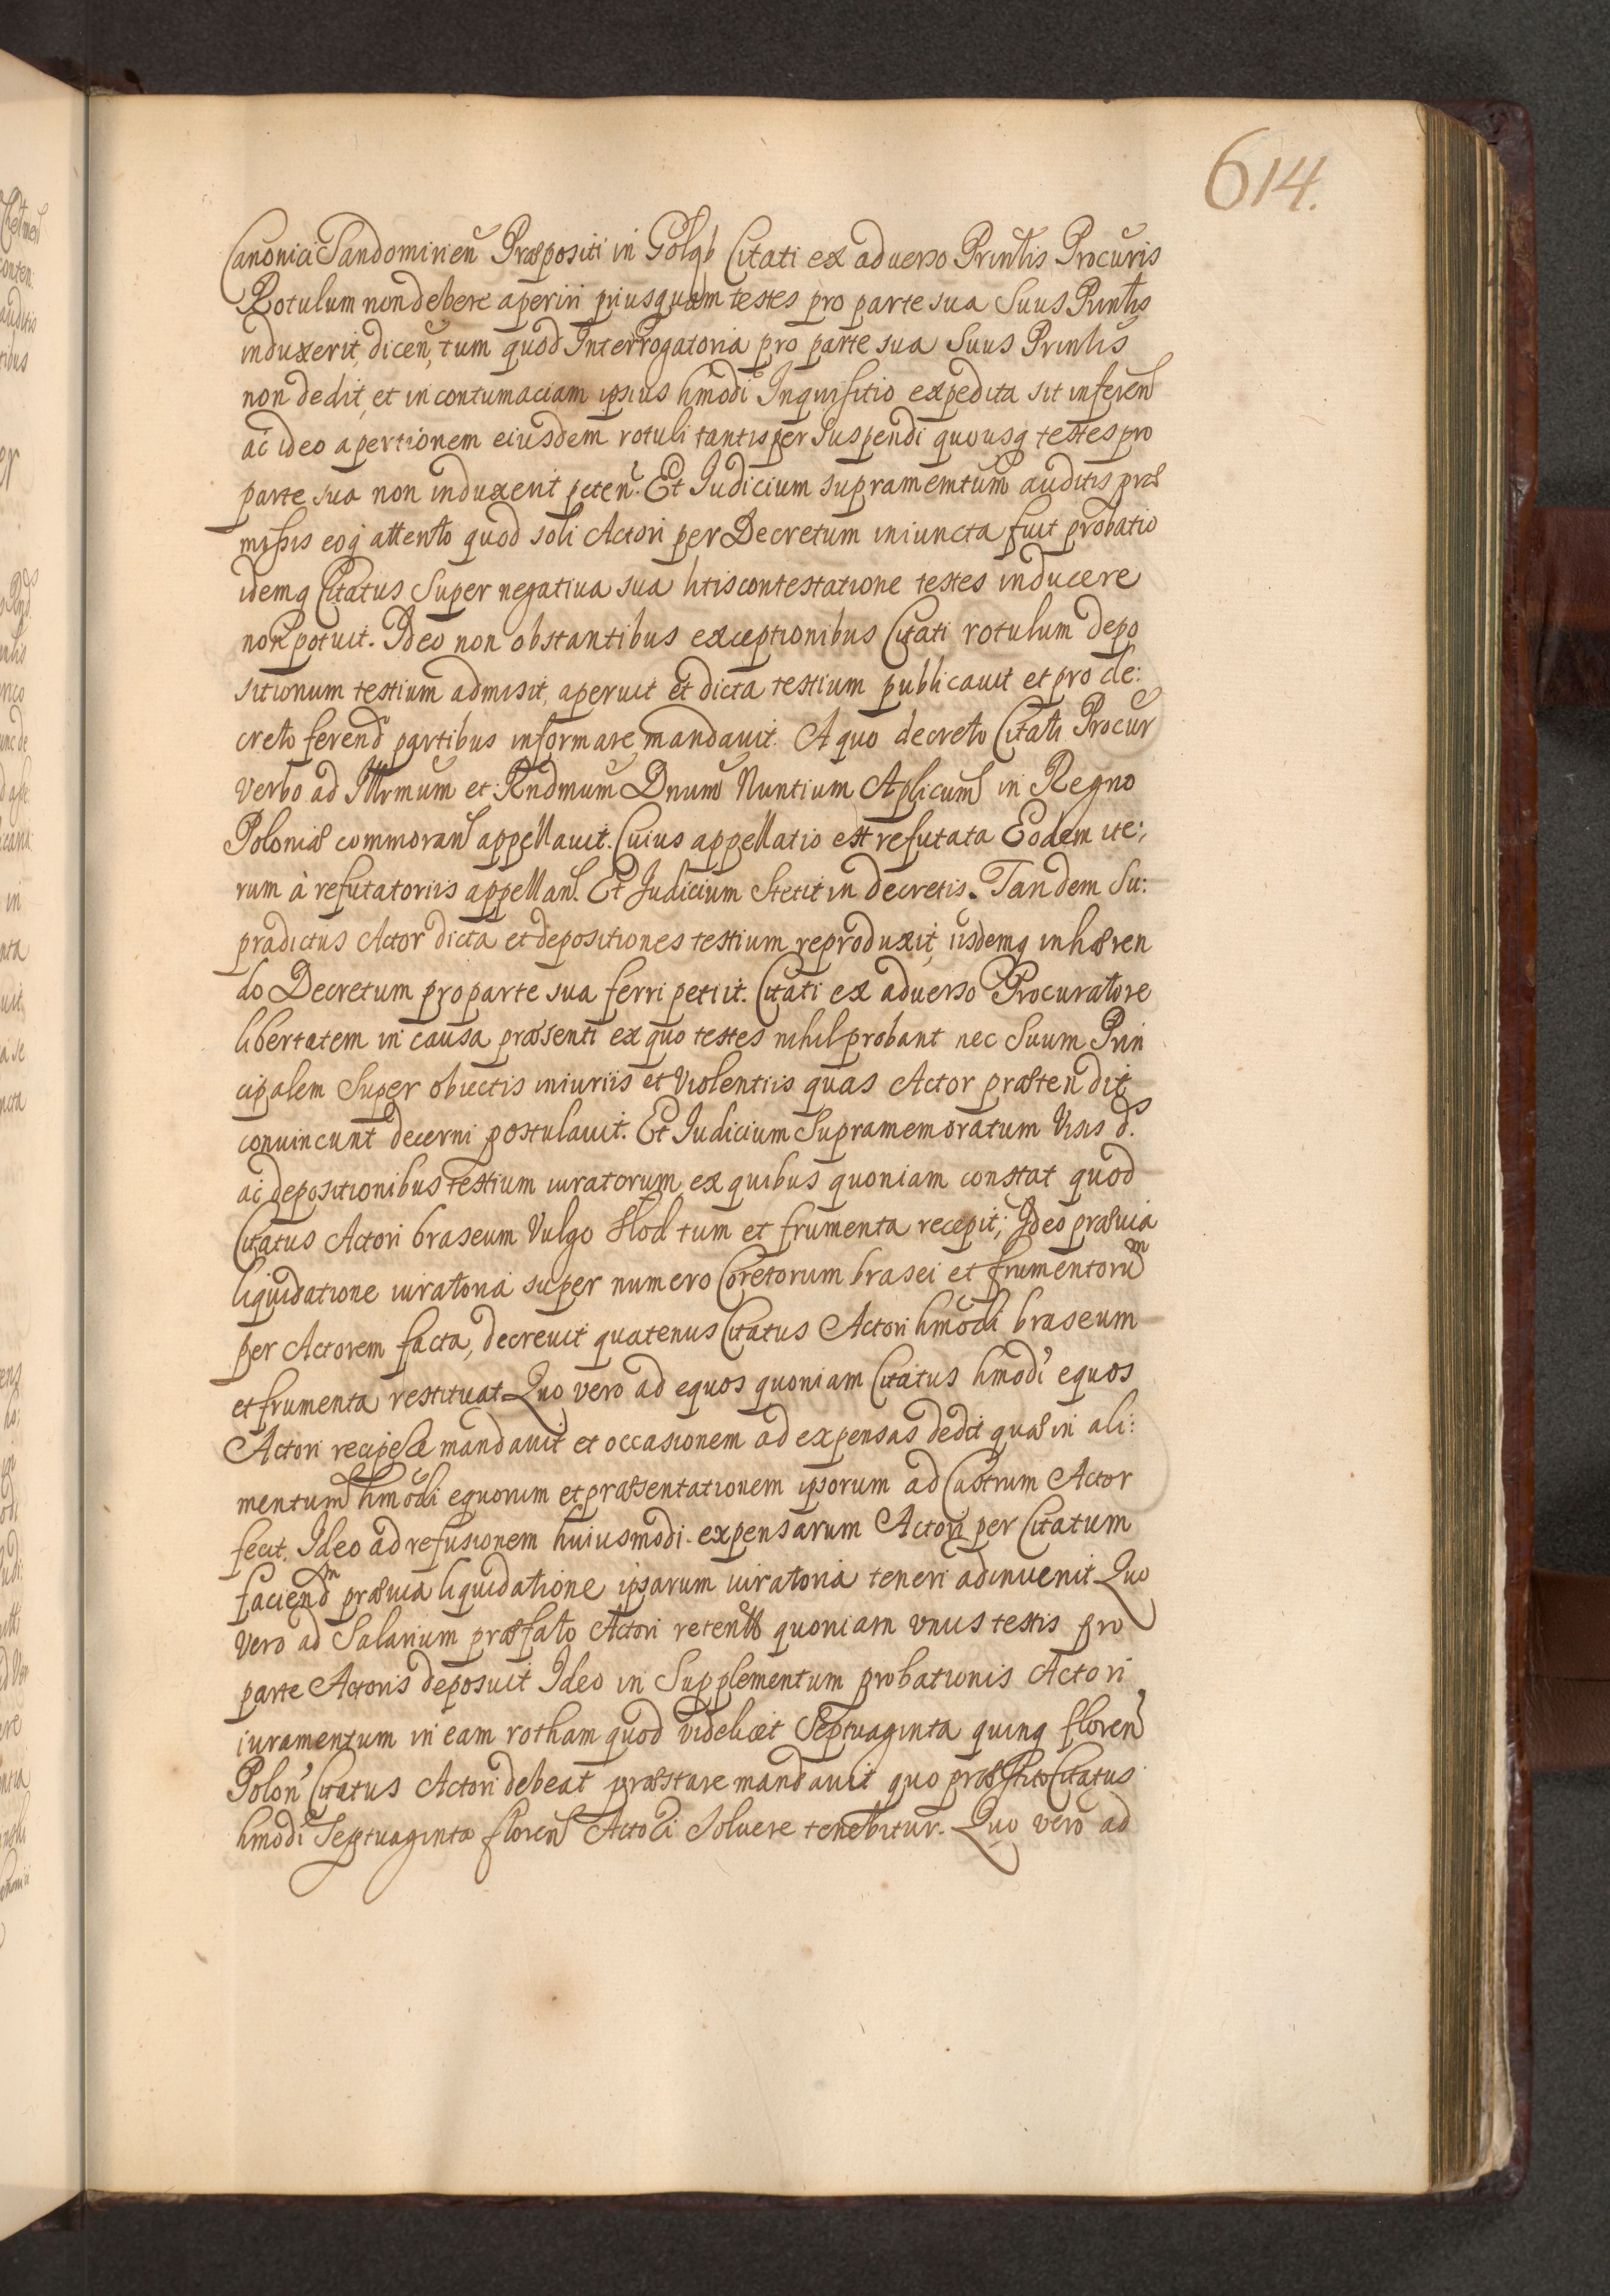 614.
Canonici Sandomirien Præpositi in Gołąb Citati ex aduerso Prinlis Procuris
Rotulum non debere aperiri priusquam testes pro parte sua Suus Prinlis
induxerit, dicen, tum quod Interrogatoria pro parte sua Suus Prinlis
non dedit, et in contumaciam ipsius hmodi Inquisitio expedita sit inferen
ac ideo apertionem eiusdem rotuli tantisper Suspendi quousq testes pro
parte sua non induxerit peten. Et Judicium supramemtum auditis præ
missis eoq attento quod soli Actori per Decretum iniuncta fuit probatio
idemq Citatus Super negatiua sua litiscontestatione testes inducere
non potuit. Ideo non obstantibus exceptionibus Citati rotulum depo
sitionum testium admisit, aperuit et dicta testium publicauit et pro de:
creto ferend partibus informare mandauit. A quo decreto Citati Procur
verbo ad Illrmum et Rndmum Dnum Nuntium Aplicum in Regno
Poloniæ commoran appellauit. Cuius appellatio est refutata Eodem ite:
rum à refutatoriis appellan. Et Judicium Stetit in decretis. Tandem Su:
pradictus Actor dicta et depositiones testium reproduxit, iisdemq inhæren
do Decretum pro parte sua ferri petiit. Citati ex aduerso Procuratore
libertatem in causa præsenti ex quo testes nihil probant nec Suum Prin
cipalem Super obiectis iniuriis et violentiis quas Actor prætendit
conuincunt decerni postulauit. Et Judicium Supramemoratum Visis d.
ac depositionibus testium iuratorum ex quibus quoniam constat quod
Citatus Actori braseum Vulgo Slod tum et frumenta recepit; Ideo præuia
liquidatione iuratoria super numero Coretorum brasei et frumentorum
per Actorem facta, decreuit quatenus Citatus Actori hmodi braseum
et frumenta restituat. Quo vero ad equos quoniam Citatus hmodi equos
Actori recipere mandauit et occasionem ad expensas dedit quas in ali:
mentum hmodi equorum et præsentationem ipsorum ad Castrum Actor
fecit. Ideo ad refusionem huiusmodi expensarum Actori per Citatum
faciendm præuia liquidatione ipsarum iuratoria teneri adinuenit Quo
vero ad Salarium præfato Actori retent quoniam vnus testis pro
parte Actoris deposuit Ideo in Supplementum probationis Actori
iuramentum in eam rotham quod videlicet Septuaginta quinq floren
Polon Citatus Actori debeat præstare mandauit quo præstito Citatus
hmodi Septuaginta floren Actori Soluere tenebitur. Quo vero ad